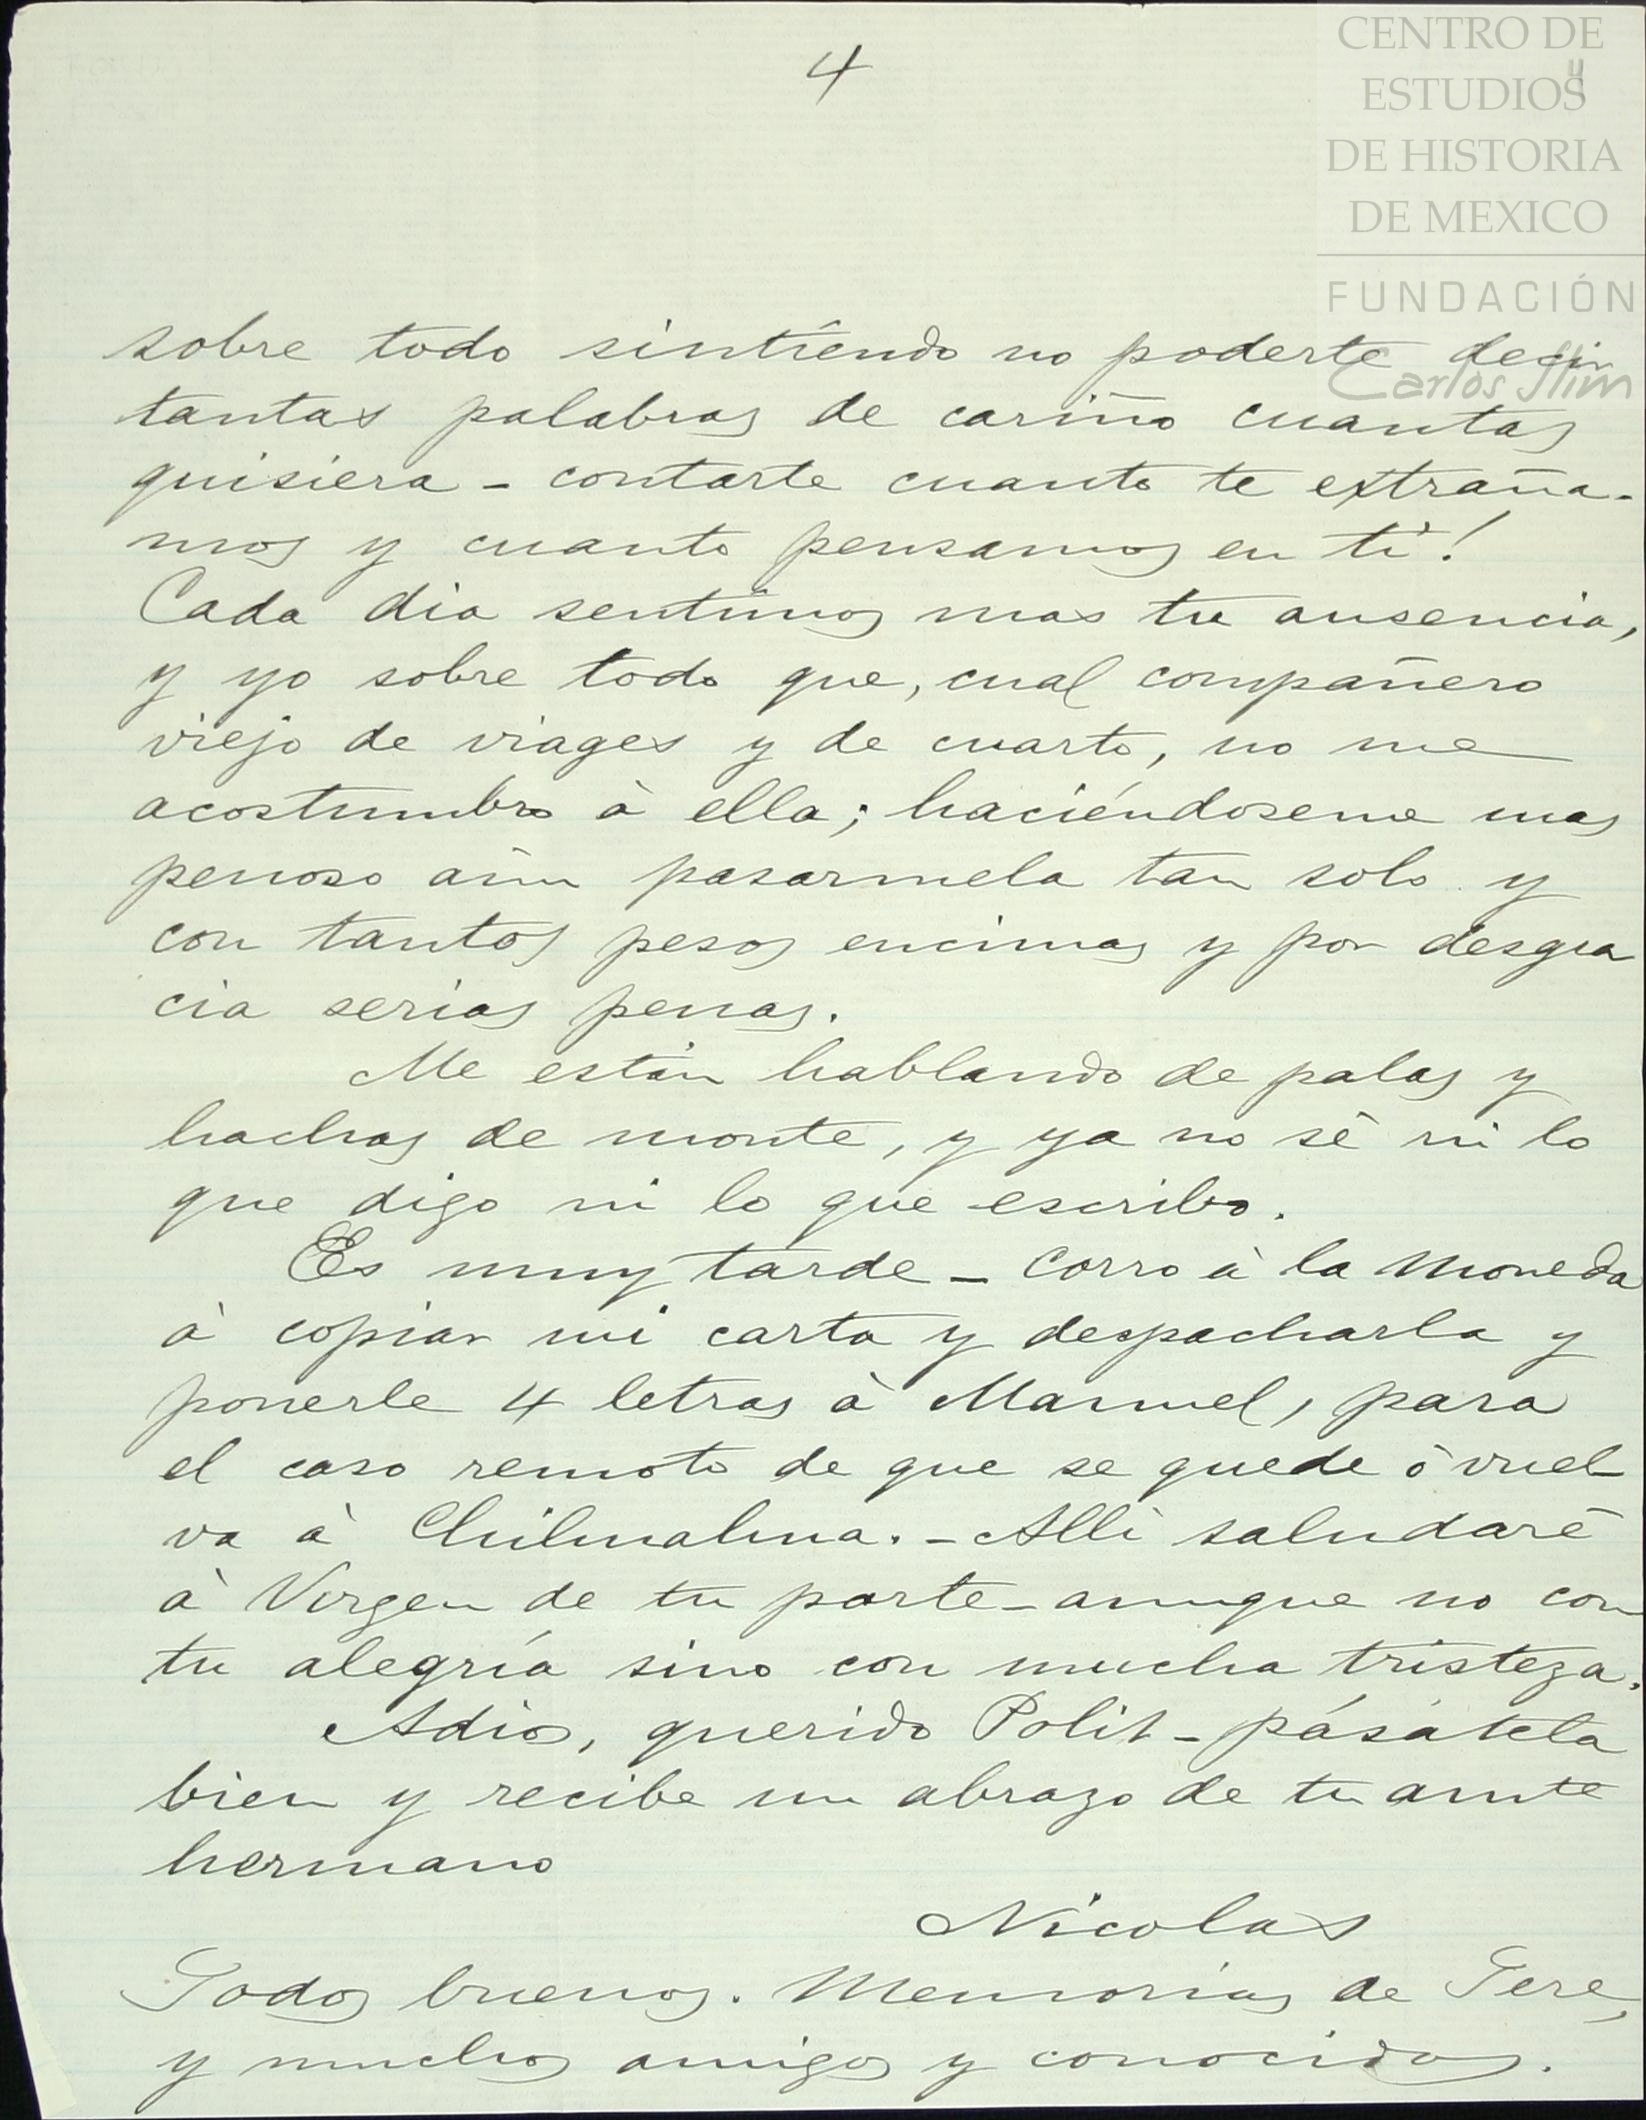 4
CENTRO DE
ESTUDIOS
DE HISTORIA
DE MEXICO
FUNDACIÓN
Carlos Slim
sobre todo sintiendo no poderte decir
tantas palabras de cariño cuantas
quisiera - contarte cuanto te extraña-
mos y cuanto pensamos en ti!
Cada dia sentimos mas tu ausencia,
y yo sobre todo que, cual compañero
viejo de viages y de cuarto, no me
acostumbro à ella; haciéndoseme mas
penoso aún pasarmela tan solo y
con tantos pesos encimas y por desgra
cia serias penas.
Me están hablando de palas y
hachas de monte, y ya no sé ni lo
que digo ni lo que escribo.
Es muy tarde - corro à la Moneda
à copiar mi carta y despacharla y
ponerle 4 letras à Manuel, para
el caso remoto de que se quede ò vuel
va à Chilmalma. - Allì saludaré
à Virgen de tu parte - aunque no con
tu alegría sino con mucha tristeza.
Adios, querido Polit - pásátela
bien y recibe un abrazo de tu amte
hermano
Nicolas
Todos buenos. Memorias de Tere,
y muchos amigos y conocidos.